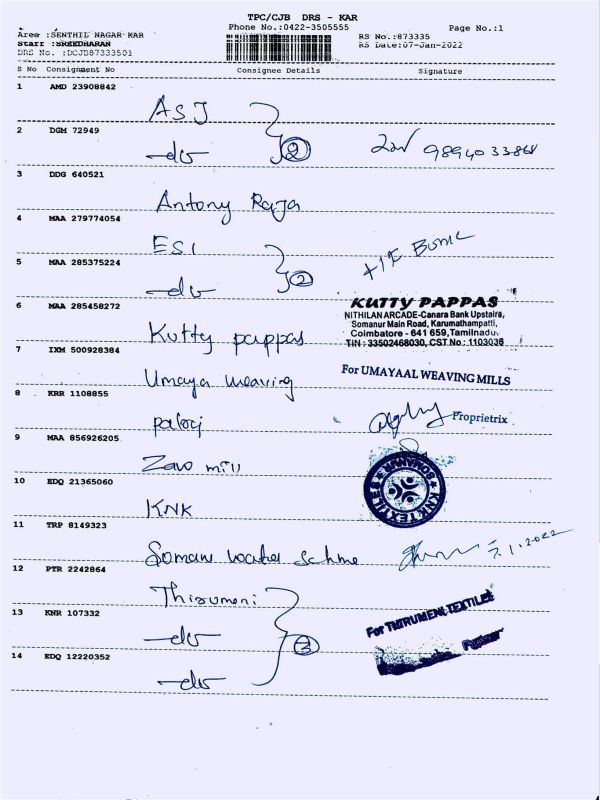 TPC/CJB DRS - KAR
Phone No.:0422-3505555
Page No.:1
Area :SENTHIL NAGAR KAR
RS No.:873335
Staff :SREEDHARAN
RS Date:07-Jan-2022
DRS No. :DCJD87333501
S No Consignment No Consignee Details Signature
1 AMD 23908842
ASJ
2 DGM 72949
-do- 2
9894033868
3 DDG 640521
Antony Raja
4 MAA 279774054
ESI
5 MAA 285375224
-do- 2
6 MAA 285458272
Kutty pappas
KUTTY PAPPAS
NITHILAN ARCADE-Canara Bank Upstairs,
Somanur Main Road, Karumathampatti,
Coimbatore - 641 659,Tamilnadu.
TIN : 33502468030, CST No : 1103036
7 IXM 500928384
Umaya weaving
For UMAYAAL WEAVING MILLS
8 KRR 1108855
Proprietrix
9 MAA 856926205
mill
10 EDQ 21365060
KNK
KNK TEXTILES SOMANUR
11 TRP 8149323
7.1.2022
12 PTR 2242864
Thirumeni
13 KNR 107332
-do- 3
For THIRUMENI TEXTILES
Partner
14 EDQ 12220352
-do-